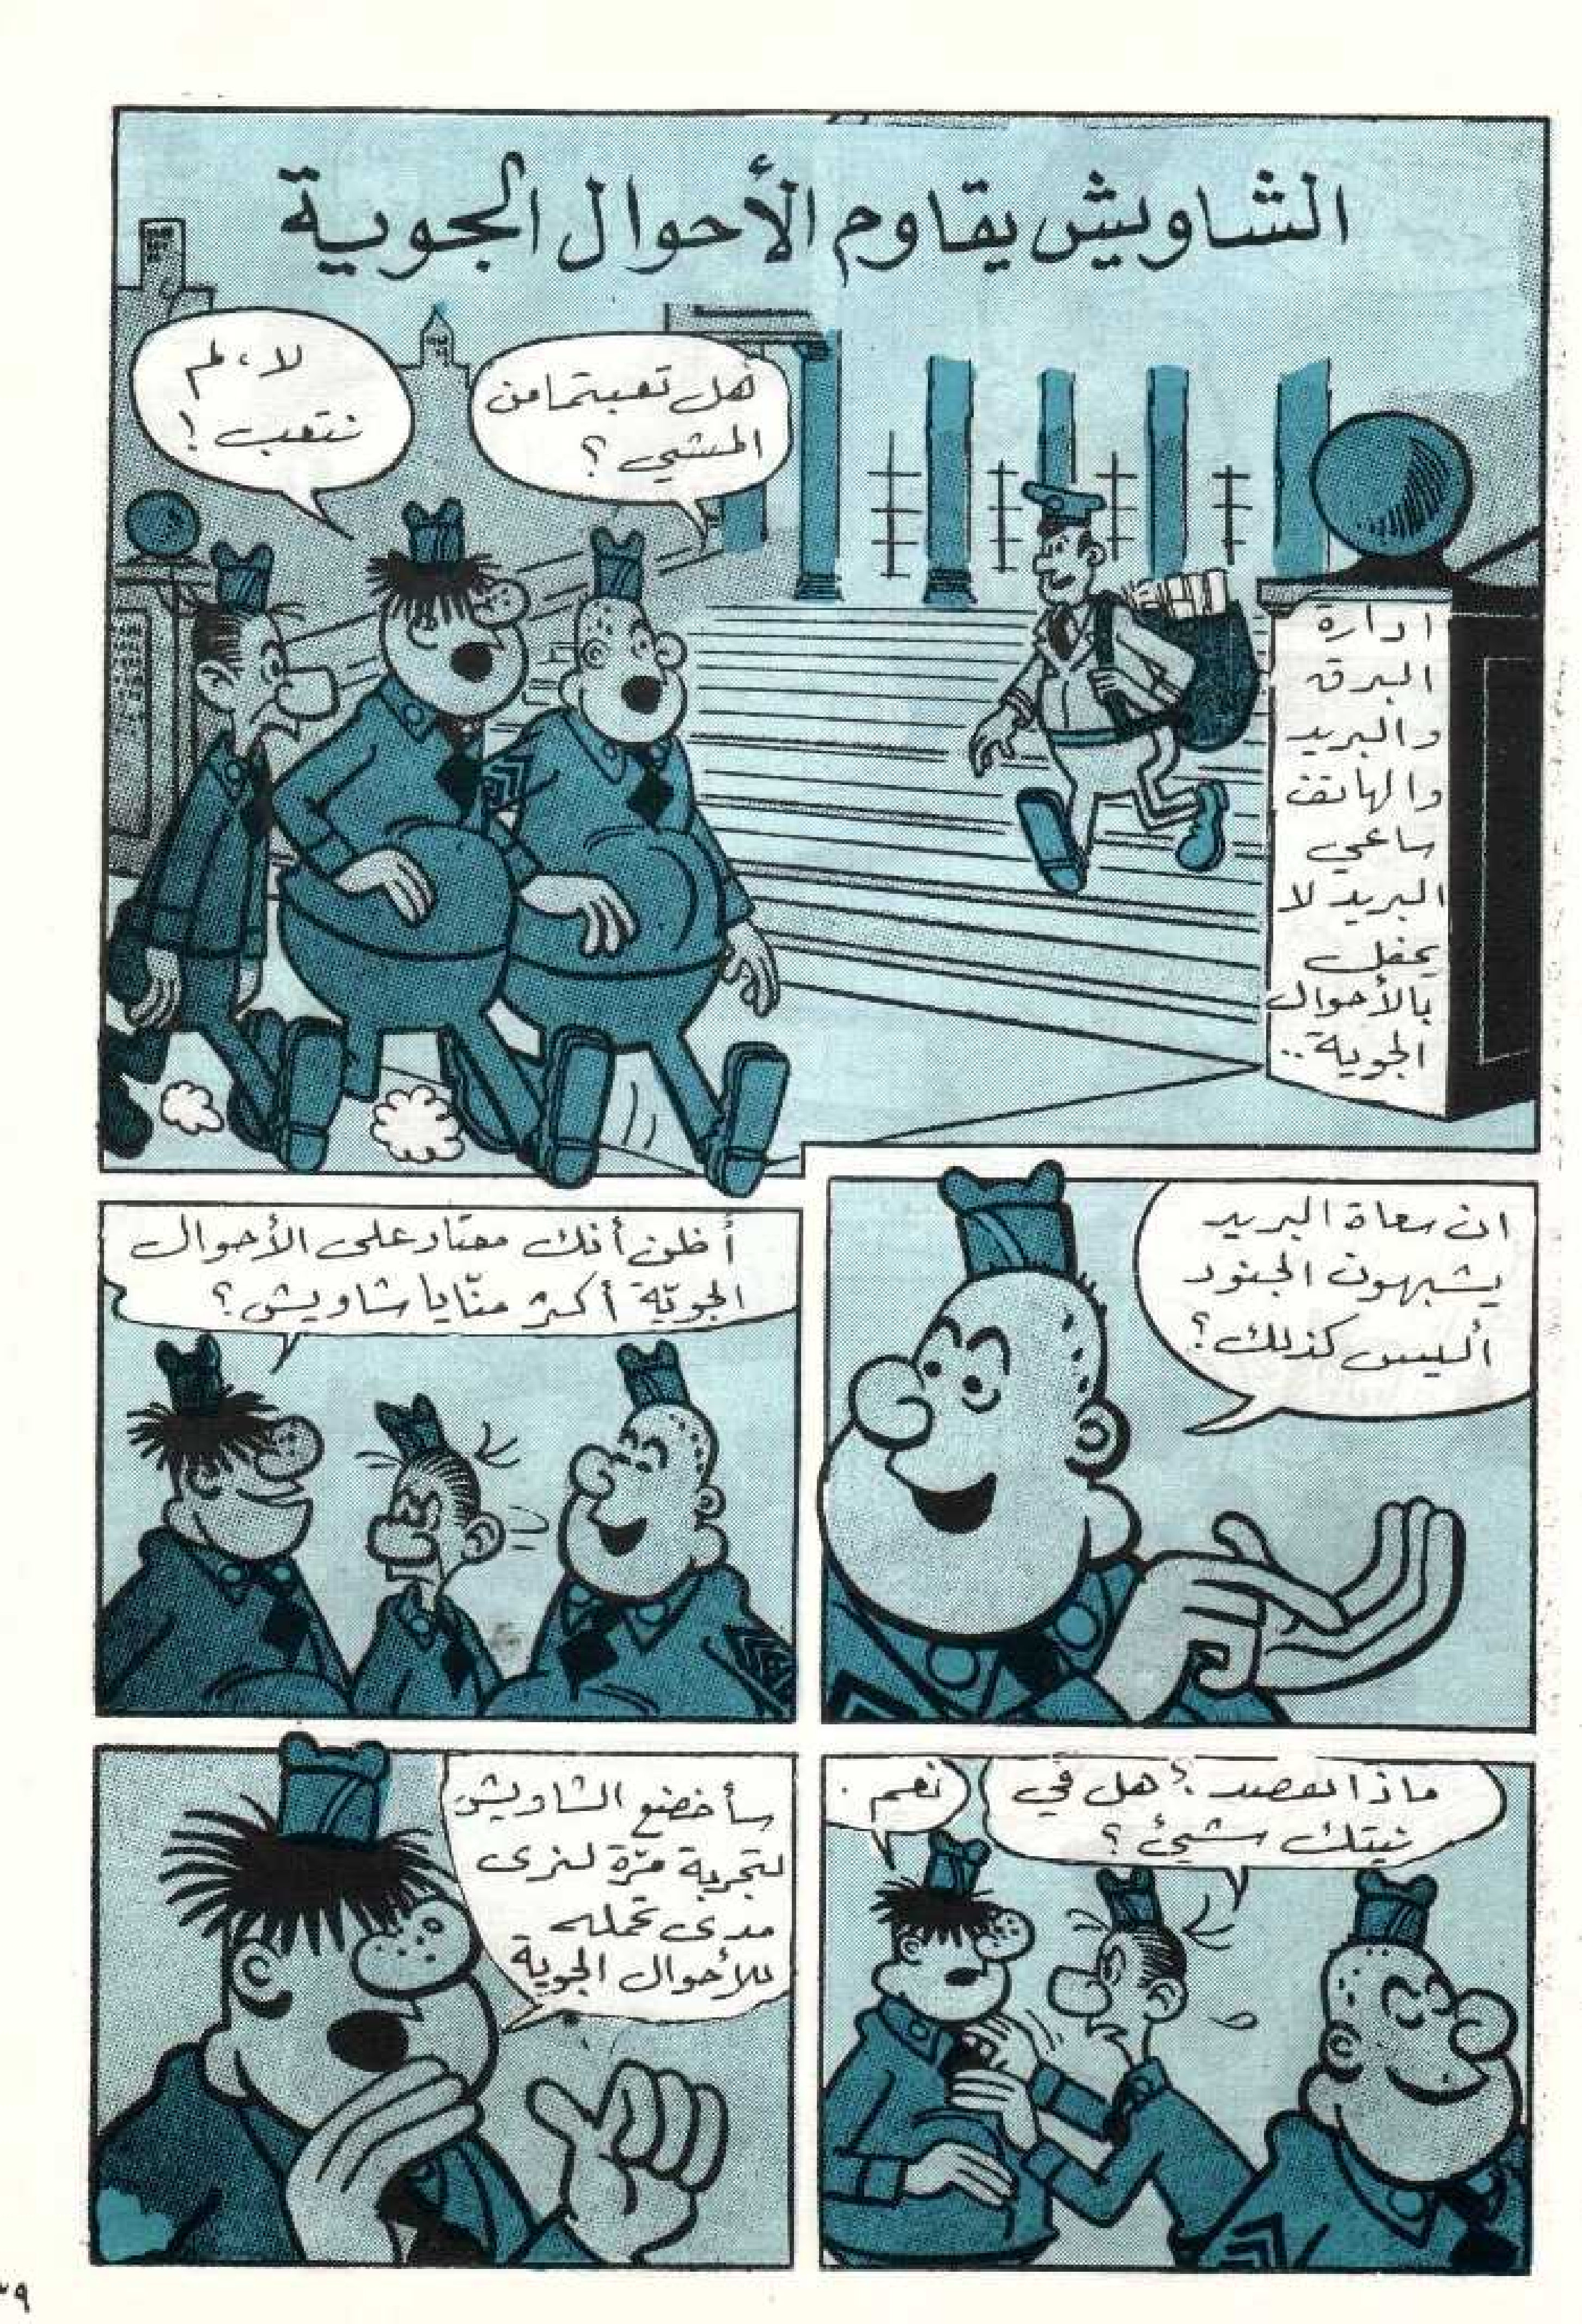 الشاويش يقاوم الأحوال الجوية
هل تعبتما من
المشي ؟
لا، لم
نتعب !
ادارة
البرق
والبريد
والهاتف
ساعي
البريد لا
يحفل
بالأحوال
الجوية ..
ان سعاة البريد
يشبهون الجنود
أليس كذلك ؟
أظن أنك معتاد على الأحوال
الجويّة أكثر منّا يا شاويش ؟
ماذا تقصد ؟ هل في
نيتك شيئ ؟
نعم .
سأخضع الشاويش
لتجربة مرّة لنرى
مدى تحمله
للأحوال الجوية